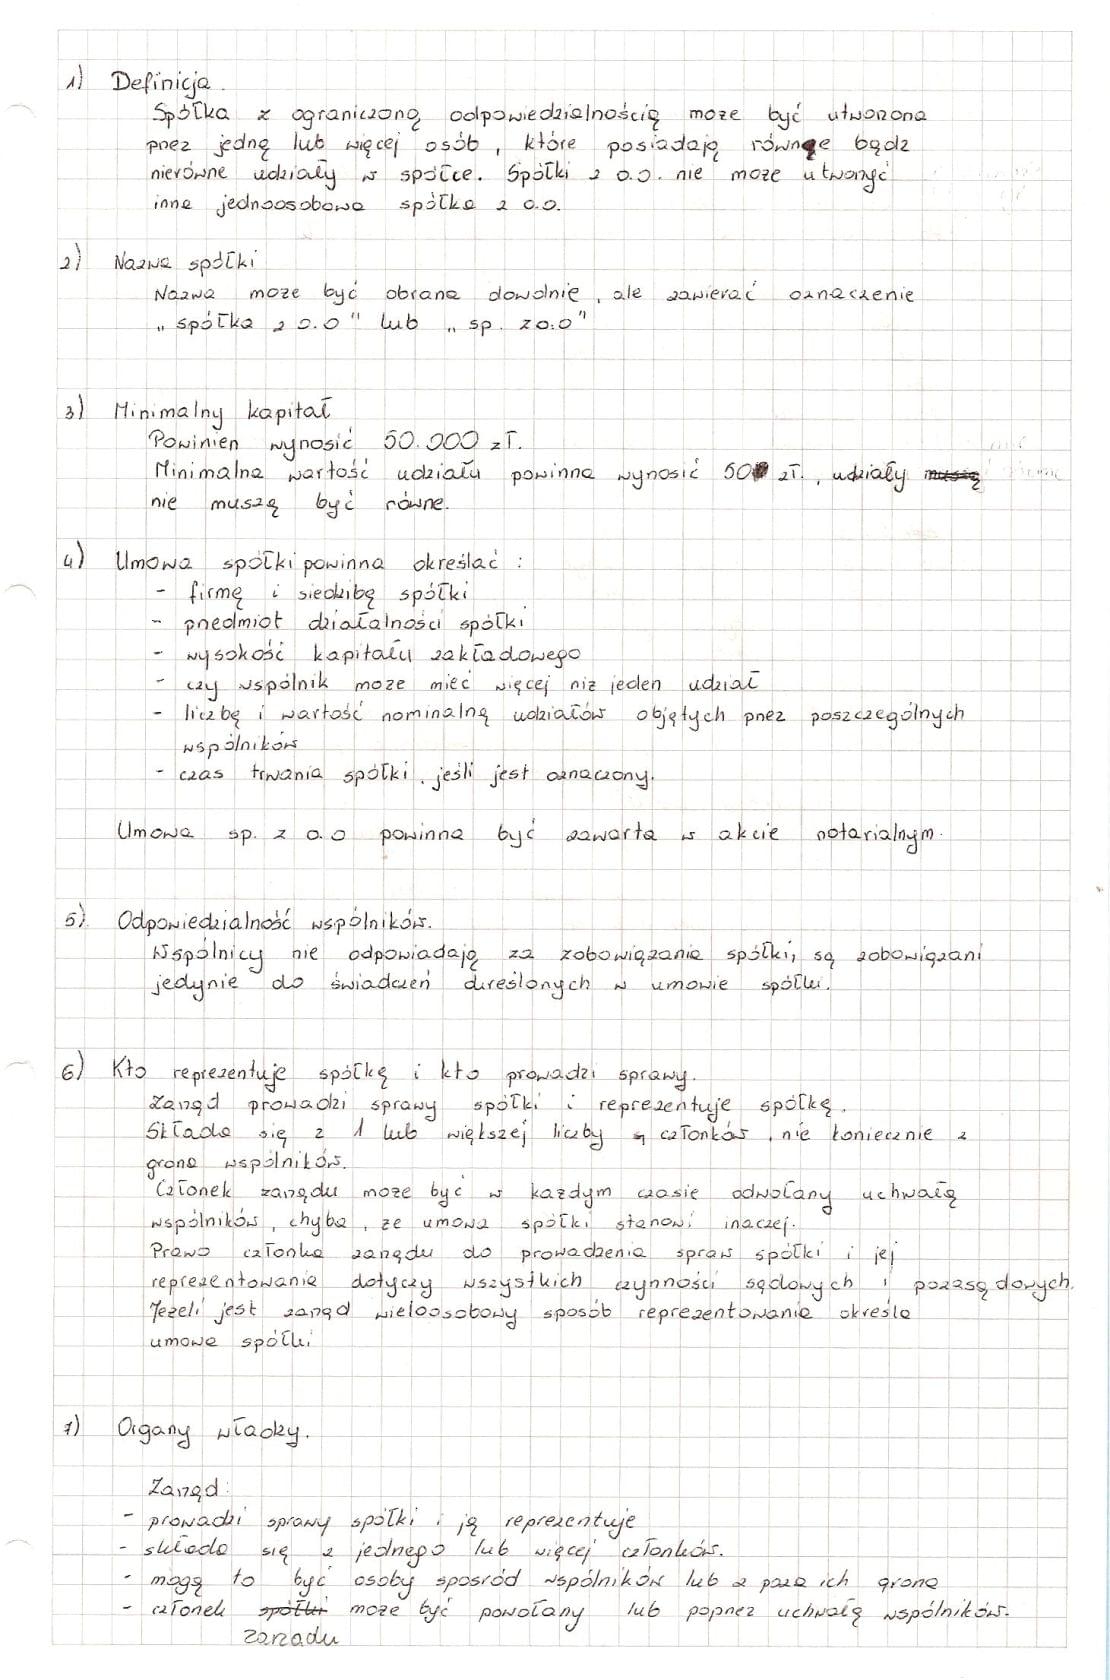 1) Definicja.
Spółka z ograniczoną odpowiedzialnością może być utworzona
przez jedną lub więcej osób, które posiadają równe bądz
nierówne udziały w spółce. Spółki z o.o. nie może utworzyć
inna jednoosobowa spółka z o.o.
2) Nazwa spółki
Nazwa może być obrana dowolnie, ale zawierać oznaczenie
„spółka z o.o" lub „sp. z o.o"
3) Minimalny kapitał
Powinien wynosić 50.000 zł.
Minimalna wartość udziału powinna wynosić 50 zł., udziały muszą
nie muszą być równe.
4) Umowa spółki powinna określać :
- firmę i siedzibę spółki
- przedmiot działalności spółki
- wysokość kapitału zakładowego
- czy wspólnik może mieć więcej niż jeden udział
- liczbę i wartość nominalną udziałów objętych przez poszczególnych
wspólników
- czas trwania spółki, jeśli jest oznaczony.
Umowa sp. z o.o powinna być zawarta w akcie notarialnym.
5) Odpowiedzialność wspólników.
Wspólnicy nie odpowiadają za zobowiązania spółki, są zobowiązani
jedynie do świadczeń określonych w umowie spółki.
6) Kto reprezentuje spółkę i kto prowadzi sprawy.
Zarząd prowadzi sprawy spółki i reprezentuje spółkę.
Składa się z 1 lub większej liczby członków, nie koniecznie z
grona wspólników.
Członek zarządu może być w każdym czasie odwołany uchwałą
wspólników, chyba, że umowa spółki stanowi inaczej.
Prawo członka zarządu do prowadzenia spraw spółki i jej
reprezentowania dotyczy wszystkich czynności sądowych i pozasądowych.
Jeżeli jest zarząd wieloosobowy sposób reprezentowania określa
umowa spółki
7) Organy władzy.
Zarząd:
- prowadzi sprawy spółki i ją reprezentuje
- składa się z jednego lub więcej członków.
- mogą to być osoby sposród wspólników lub z poza ich grona
- członek spółki może być powołany lub poprzez uchwałą wspólników.
zarządu